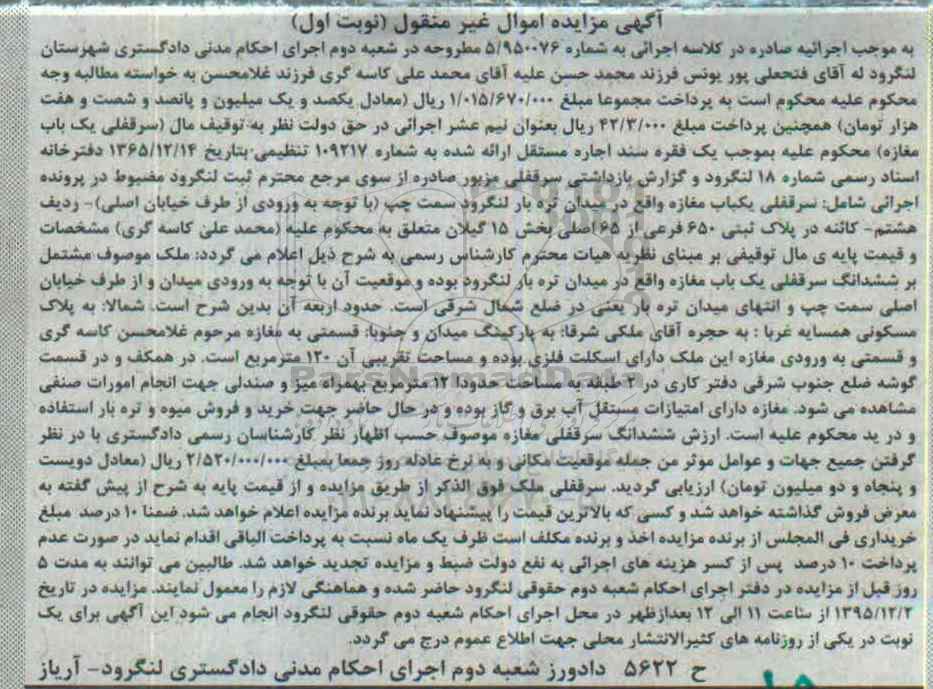 آگهی مزایده اموال غیر منقول (نوبت اول)
به موجب اجرائیه صادره در کلاسه اجرائی به شماره ۵/۹۵۰۰۷۶ مطروحه در شعبه دوم اجرای احکام مدنی دادگستری شهرستان
لنگرود له آقای فتحعلی پور یونس فرزند محمد حسن علیه آقای محمد علی کاسه گری فرزند غلامحسن به خواسته مطالبه وجه
محکوم علیه محکوم است به پرداخت مجموعا مبلغ ۱/۰۱۵/۶۷۰/۰۰۰ ریال (معادل یکصد و یک میلیون و پانصد و شصت و هفت
هزار تومان) همچنین پرداخت مبلغ ۴۲/۳/۰۰۰ ریال بعنوان نیم عشر اجرائی در حق دولت نظر به توقیف مال (سرقفلی یک باب
مغازه) محکوم علیه بموجب یک فقره سند اجاره مستقل ارائه شده به شماره ۱۰۹۲۱۷ تنظیمی بتاریخ ۱۳۶۵/۱۲/۱۴ دفترخانه
اسناد رسمی شماره ۱۸ لنگرود و گزارش بازداشتی سرقفلی مزبور صادره از سوی مرجع محترم ثبت لنگرود مضبوط در پرونده
اجرائی شامل: سرقفلی یکباب مغازه واقع در میدان تره بار لنگرود سمت چپ (با توجه به ورودی از طرف خیابان اصلی)- ردیف
هشتم- کائنه در پلاک ثبتی ۶۵۰ فرعی از ۶۵ اصلی بخش ۱۵ گیلان متعلق به محکوم علیه (محمد علی کاسه گری) مشخصات
و قیمت پایه ی مال توقیفی بر مبنای نظریه هیات محترم کارشناس رسمی به شرح ذیل اعلام می گردد: ملک موصوف مشتمل
بر ششدانگ سرقفلی یک باب مغازه واقع در میدان تره بار لنگرود بوده و موقعیت آن با توجه به ورودی میدان و از طرف خیابان
اصلی سمت چپ و انتهای میدان تره بار یعنی در ضلع شمال شرقی است. حدود اربعه آن بدین شرح است. شمالا: به پلاک
مسکونی همسایه غربا : به حجره آقای ملکی شرقا: به پارکینگ میدان و جنوبا: قسمتی به مغازه مرحوم غلامحسن کاسه گری
و قسمتی به ورودی مغازه این ملک دارای اسکلت فلزی بوده و مساحت تقریبی آن ۱۲۰ مترمربع است. در همکف و در قسمت
گوشه ضلع جنوب شرقی دفتر کاری در ۲ طبقه به مساحت حدودا ۱۲ مترمربع بهمراه میز و صندلی جهت انجام امورات صنفی
مشاهده می شود. مغازه دارای امتیازات مستقل آب برق و گاز بوده و در حال حاضر جهت خرید و فروش میوه و تره بار استفاده
و در ید محکوم علیه است. ارزش ششدانگ سرقفلی مغازه موصوف حسب اظهار نظر کارشناسان رسمی دادگستری با در نظر
گرفتن جمیع جهات و عوامل موثر من جمله موقعیت مکانی و به نرخ عادله روز جمعا بمبلغ ۲/۵۲۰/۰۰۰/۰۰۰ ریال (معادل دویست
و پنجاه و دو میلیون تومان) ارزیابی گردید. سرقفلی ملک فوق الذکر از طریق مزایده و از قیمت پایه به شرح از پیش گفته به
معرض فروش گذاشته خواهد شد و کسی که بالاترین قیمت را پیشنهاد نماید برنده مزایده اعلام خواهد شد. ضمنا ۱۰ درصد مبلغ
خریداری فی المجلس از برنده مزایده اخذ و برنده مکلف است ظرف یک ماه نسبت به پرداخت الباقی اقدام نماید در صورت عدم
پرداخت ۱۰ درصد پس از کسر هزینه های اجرائی به نفع دولت ضبط و مزایده تجدید خواهد شد. طالبین می توانند به مدت ۵
روز قبل از مزایده در دفتر اجرای احکام شعبه دوم حقوقی لنگرود حاضر شده و هماهنگی لازم را معمول نمایند. مزایده در تاریخ
۱۳۹۵/۱۲/۲ از ساعت ۱۱ الی ۱۲ بعدازظهر در محل اجرای احکام شعبه دوم حقوقی لنگرود انجام می شود این آگهی برای یک
نوبت در یکی از روزنامه های کثیرالانتشار محلی جهت اطلاع عموم درج می گردد.
ح ۵۶۲۲ دادورز شعبه دوم اجرای احکام مدنی دادگستری لنگرود- آریاز
ParsNamadData